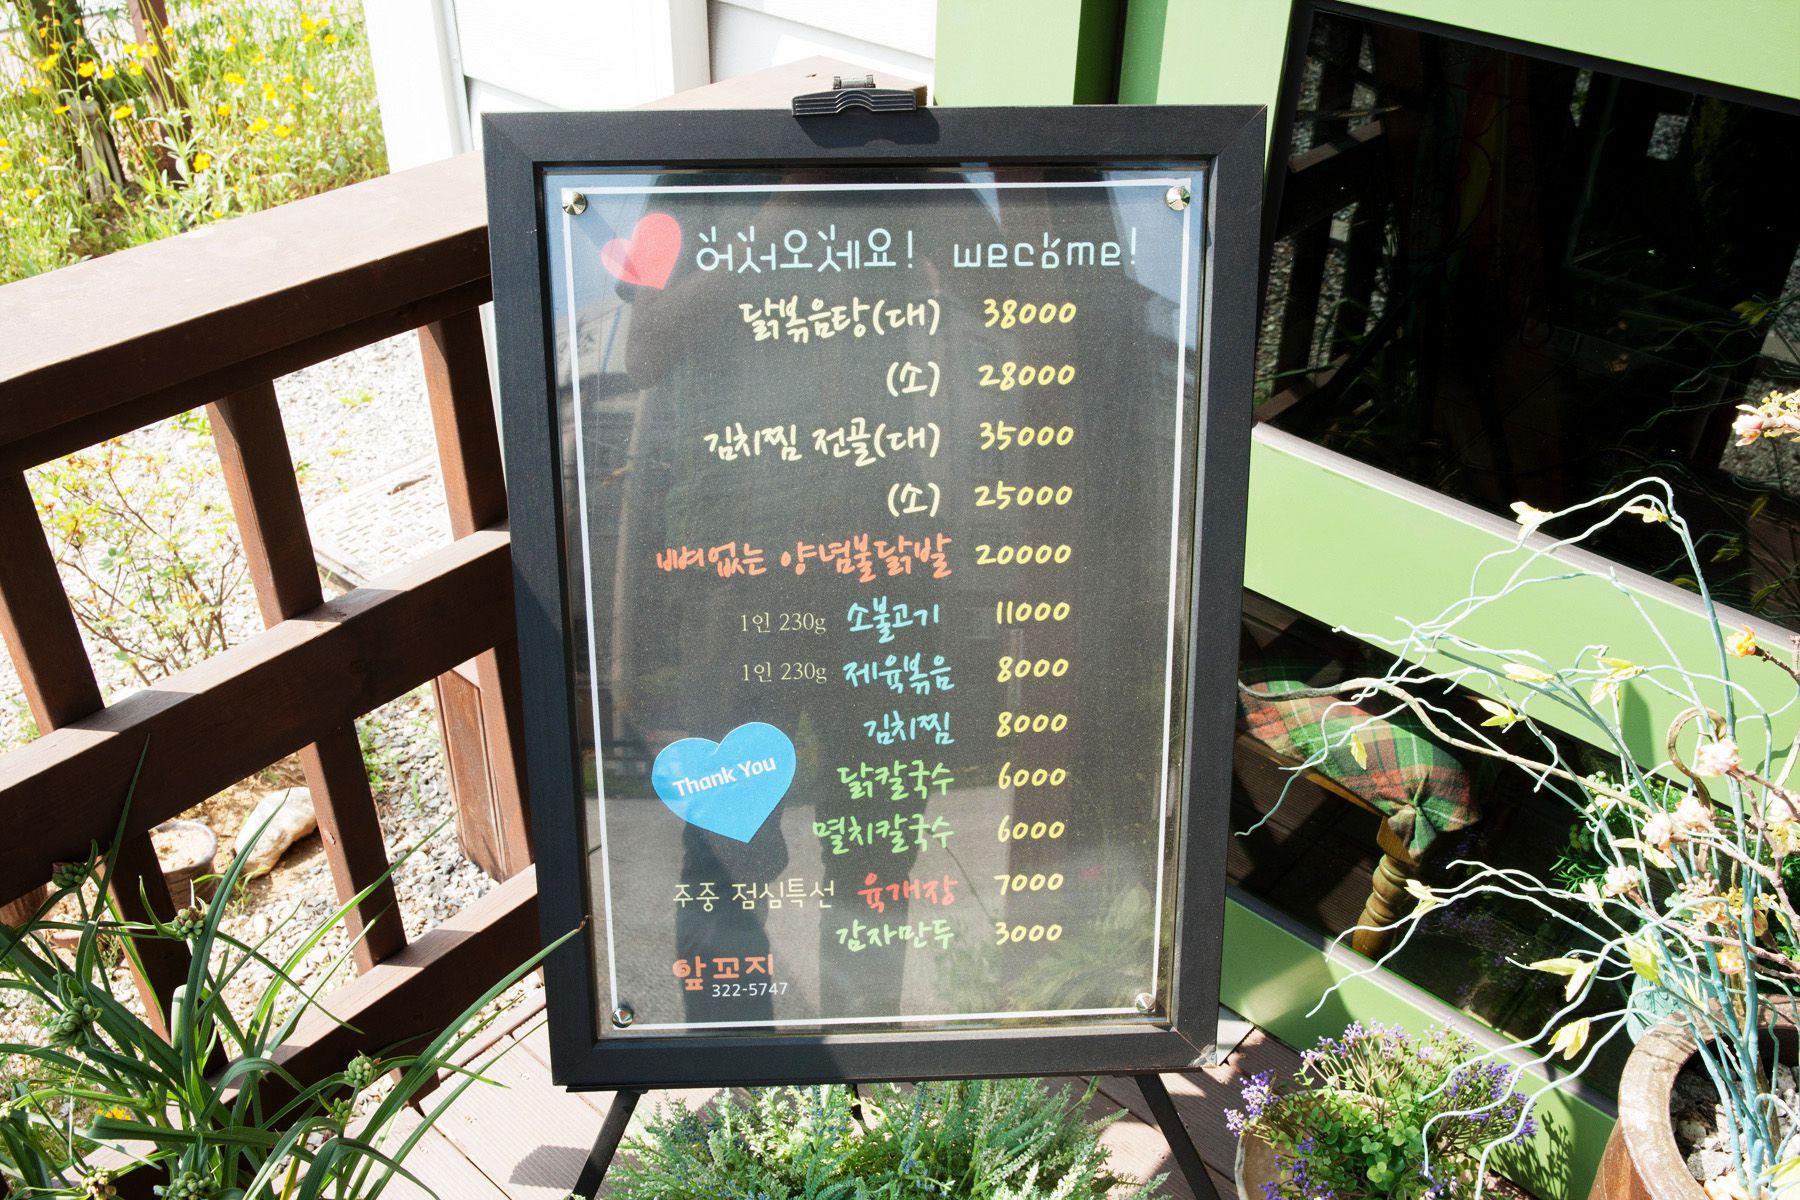 어서오세요! wecome!
닭볶음탕(대) 38000
(소) 28000
김치찜 전골(대) 35000
(소) 25000
뼈없는 양념불닭발 20000
1인 230g 소불고기 11000
1인 230g 제육볶음 8000
김치찜 8000
Thank You
닭칼국수 6000
멸치칼국수 6000
주중 점심특선 육개장 7000
감자만두 3000
앞꼬지
322-5747